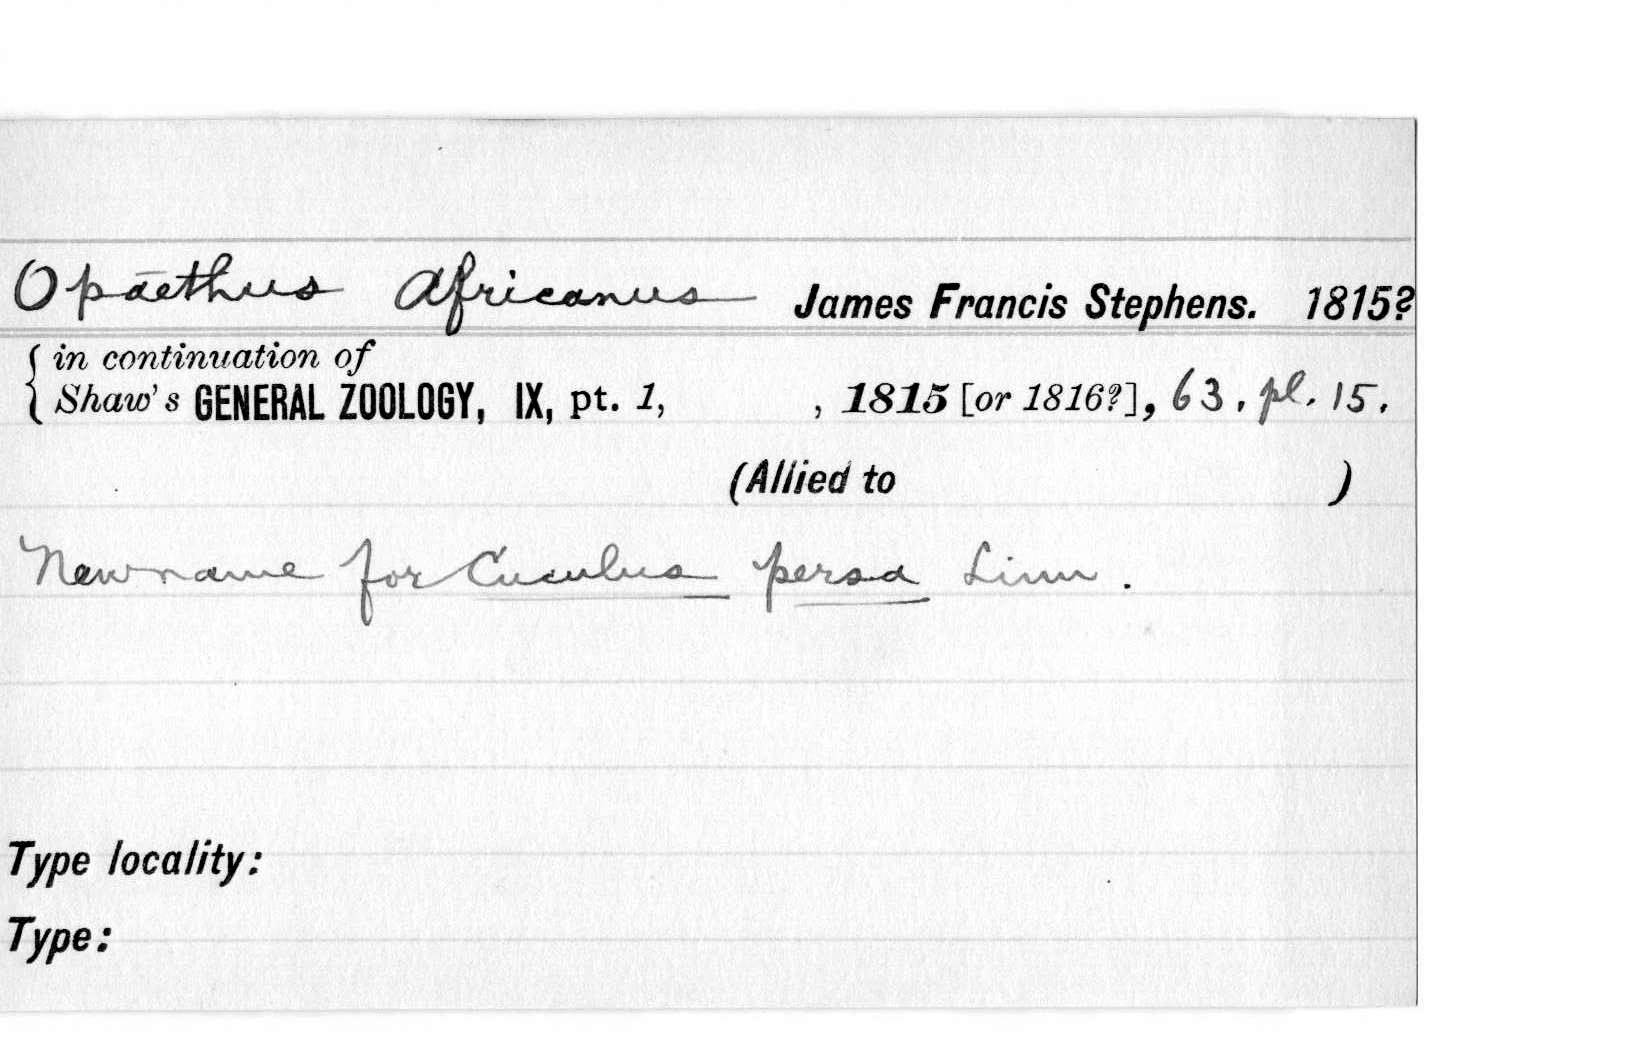 Opāethus Africanus James Francis Stephens. 1815?
{ in continuation of
Shaw's GENERAL ZOOLOGY, IX, pt. 1, , 1815 [or 1816?], 63, pl. 15.
(Allied to )
New name for Cuculus persa Linn.
Type locality:
Type: